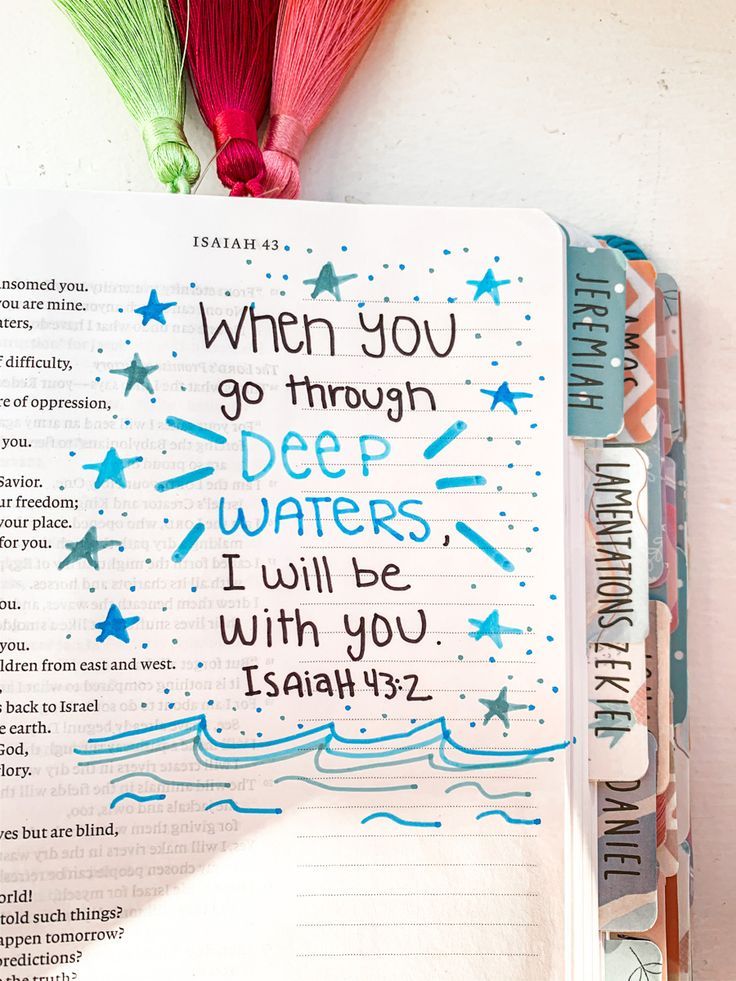 ISAIAH 43
ansomed you.
you are mine.
aters,
f difficulty,
re of oppression,
you.
Savior.
ur freedom;
your place.
for you.
ou.
you.
ldren from east and west.
s back to Israel
e earth.
God,
lory.
yes but are blind,
orld!
told such things?
appen tomorrow?
predictions?
the truth?
When you
go through
Deep
Waters,
I will be
with you.
Isaiah 43:2
JEREMIAH
AMOS
LAMENTATIONS
ZEKIEL
DANIEL